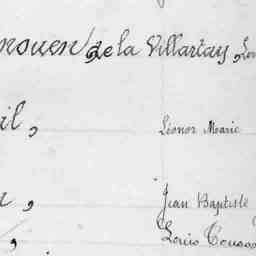 nouen de la Villartay, Lou
il, Léonor Marie
, Jean Baptiste
, Louis Toussa